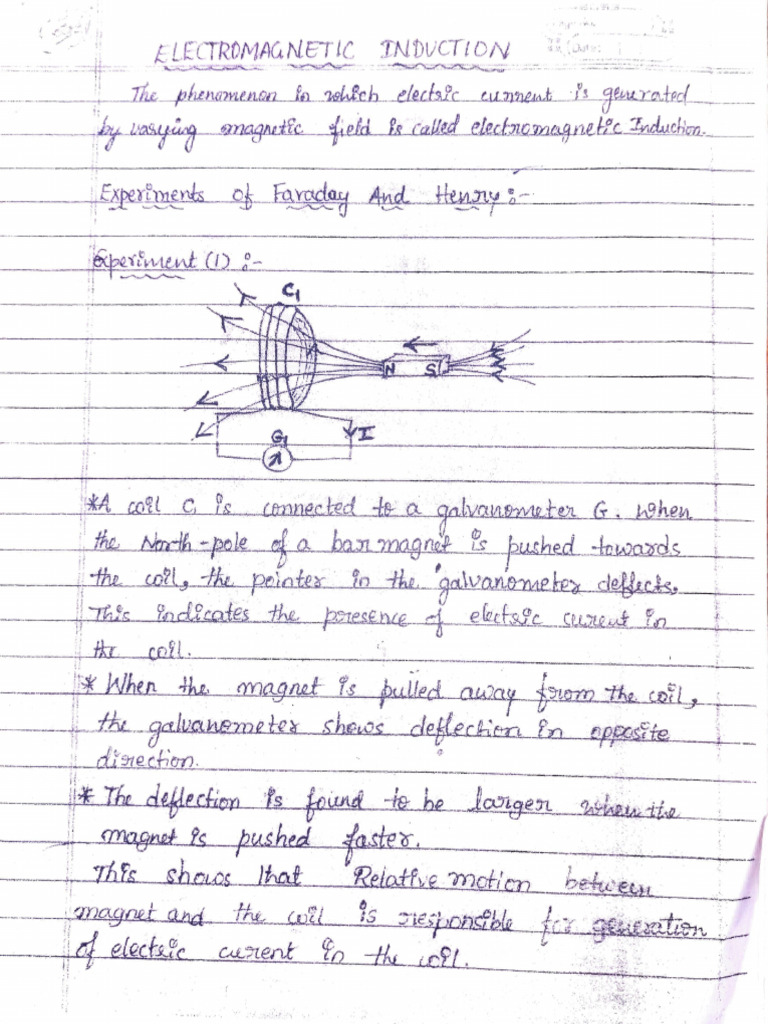 ELECTROMAGNETIC INDUCTION
The phenomenon in which electric current is generated
by varying magnetic field is called electromagnetic Induction.
Experiments of Faraday And Henry :-
Experiment (1) :-
C1
N S
I
G
*A coil C1 is connected to a galvanometer G. When
the North-pole of a bar magnet is pushed towards
the coil, the pointer in the galvanometer deflects.
This indicates the presence of electric curent in
the coil.
* When the magnet is pulled away from the coil,
the galvanometer shows deflection in opposite
direction.
* The deflection is found to be larger when the
magnet is pushed faster.
This shows that Relative motion between
magnet and the coil is responsible for generation
of electric curent in the coil.